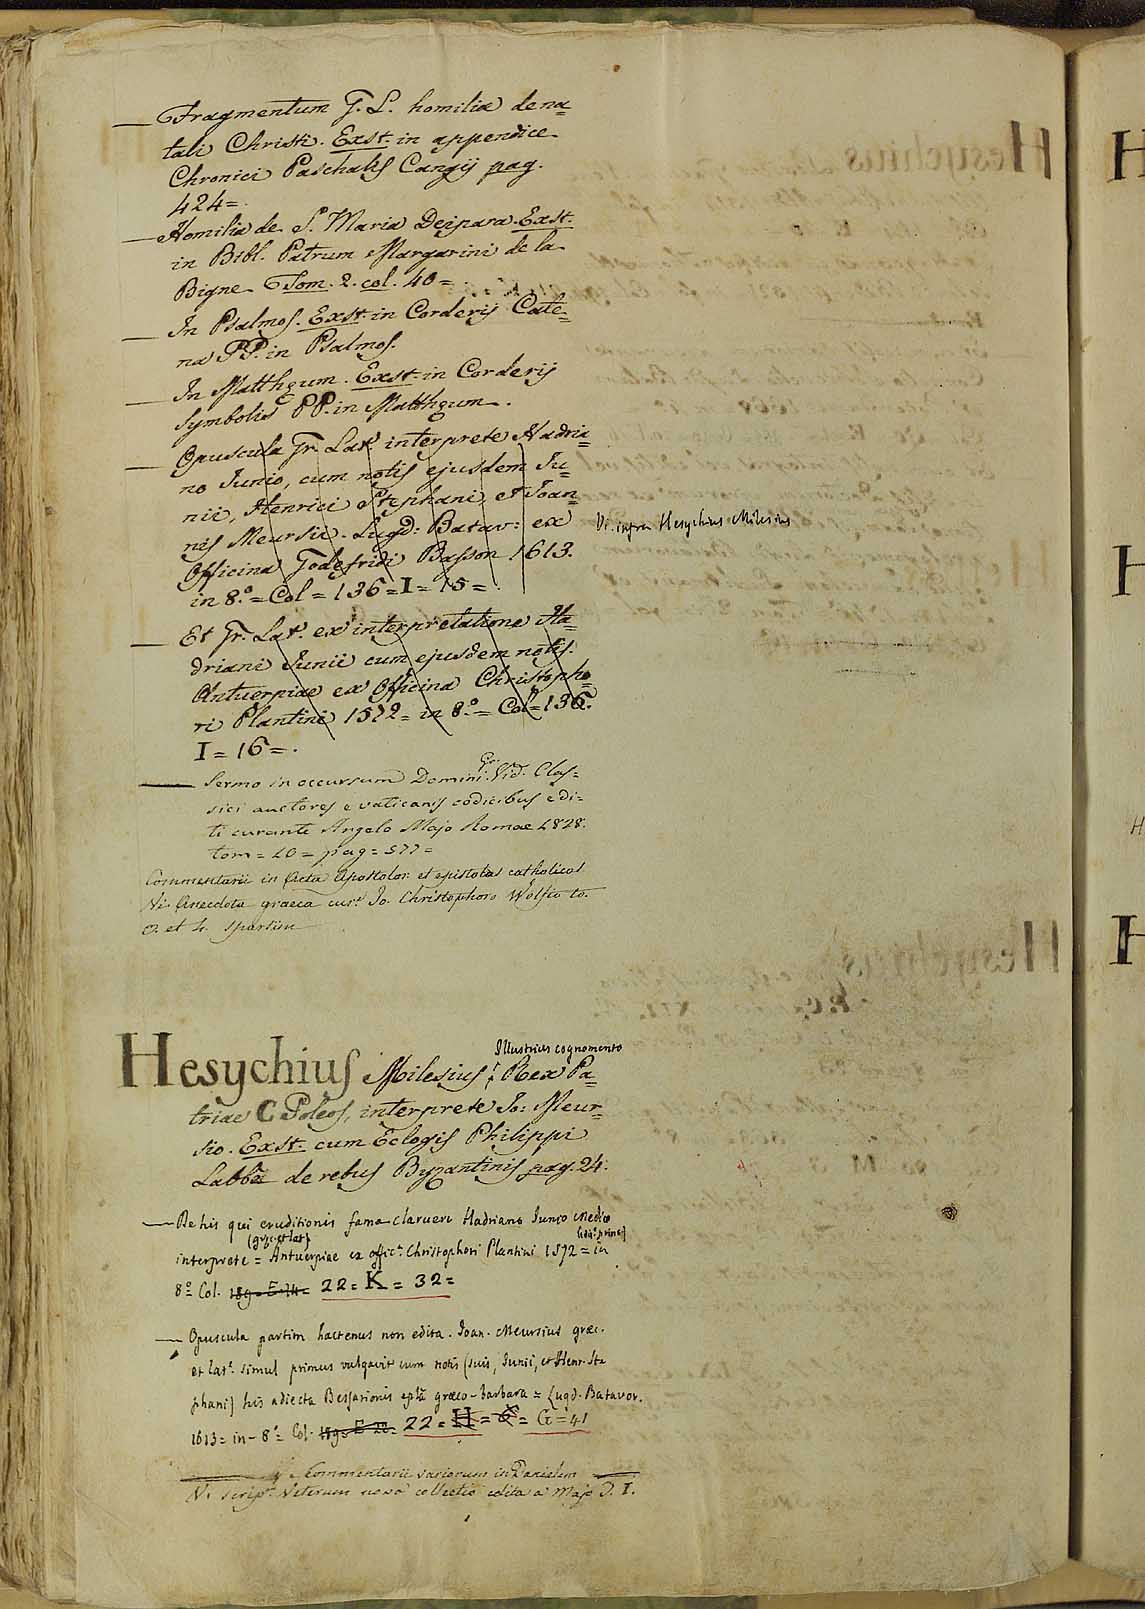 — Fragmentum G. L. homiliæ de na=
tali Christi. Exst. in appendice
Chronici Paschalis Cangij pag.
424=
— Homilia de S.ª Maria Deipara. Exst.
in Bibl. Patrum Margarini de la
Bigne. Tom. 2. col. 40=
— In Psalmos. Exst. in Corderij Cate=
na PP. in Psalmos.
— In Matthęum. Exst. in Corderij
Symbolis PP. in Matthęum.
— Opuscula Gr. Lat. interprete Hadria=
no Junio, cum notis ejusdem Ju=
nii, Henrici Stephani, et Joan=
nis Meursii. Lugd: Batav: ex
Officina Godefridi Basson 1613.
in 8.º = Col = 136 = I = 15 =
Vi. infra Hesychius Milesius
— Et Gr. Lat. ex interpretatione Ha=
driani Junii cum ejusdem notis.
Antuerpiae ex Officina Christopho=
ri Plantini 1572 = in 8.º = Col = 136.
I = 16 = .
— Sermo in occursum Domini Gr. Vid. Clas=
sici auctores e vaticanis codicibus edi=
ti curante Angelo Majo Romae 1828.
tom = 10 = pag = 577 =
Commentarii in Acta Apostolor. et epistolas catholicas
Vi. Anecdota graeca cur. Jo. Christophoro Wolfio to.
3. et 4. sparsim
Illustrius cognomento
Hesychius Milesius, Rex Pa=
triae C Poleos, interprete Jo: Meur=
sio. Exst. cum Eclogis Philippi
Labbæ de rebus Byzantinis pag. 24.
— De his qui eruditionis fama claruere Hadriano Junio Medico
(græc. et lat.) (edi.º princ.)
interprete = Antuerpiae ex offic.ª Christophori Plantini 1572 = in
8.º Col. 189 = E = 14 = 22 = K = 32 =
— Opuscula partim hactenus non edita. Joan. Meursius græc.
et lat.ª simul primus vulgavit cum notis (suis, Junii, et Henr. Ste
phani) his adiecta Bessarionis eplã græco-barbara = Lugd. Batavor.
1613 = in - 8.º = Col. 189 = E = 22 = 22 = H = 6 = G = 41
— Commentarii variorum in Danielem —
Vi. scrip. Veterum nova collectio edita a Majo T. I.